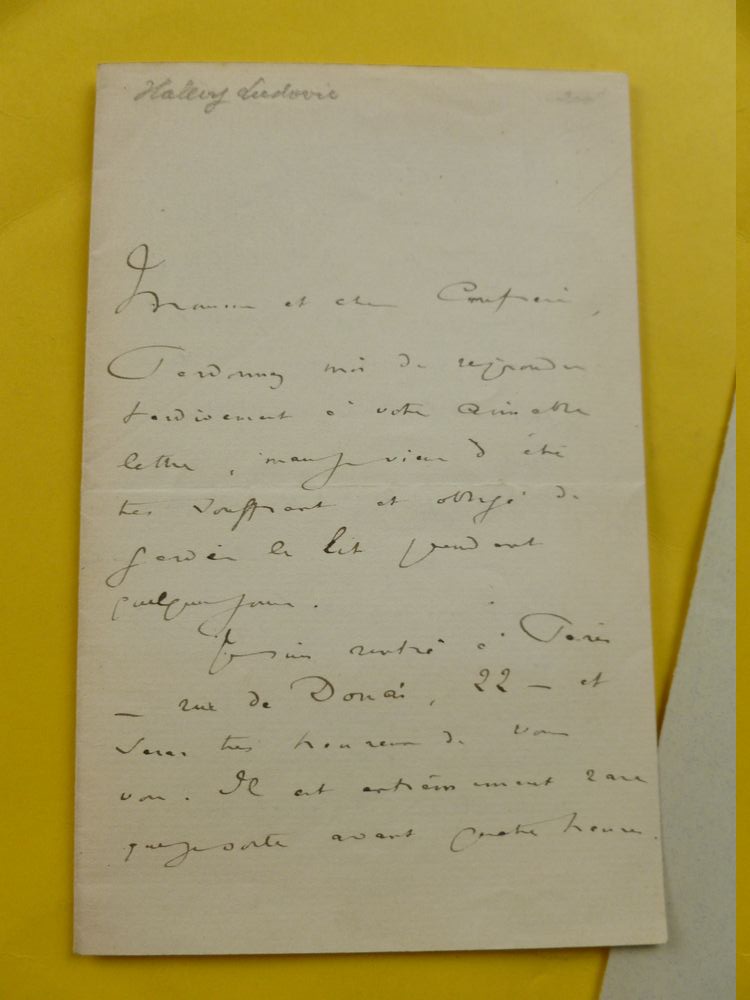 Halévy Ludovic
Monsieur et cher Confrère,
Pardonnez moi de répondre
tardivement à votre aimable
lettre, mais je viens d'être
très souffrant et obligé de
garder le lit pendant
quelques jours.
Je suis rentré à Paris
— rue de Douai, 22 — et
serai très heureux de vous
voir. Il est extrêmement rare
que je sorte avant quatre heures.